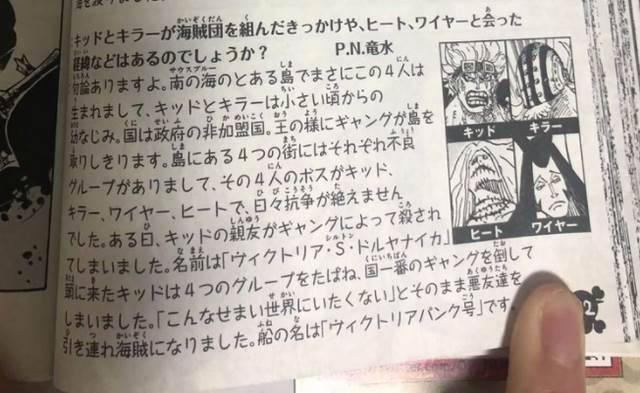 キッドとキラーが海賊団を組んだきっかけや、ヒート、ワイヤーと会った
経緯などはあるのでしょうか? P.N.竜水
勿論ありますよ。南の海のとある島でまさにこの4人は
生まれまして、キッドとキラーは小さい頃からの
幼なじみ。国は政府の非加盟国。王の様にギャングが島を
取りしきります。島にある4つの街にはそれぞれ不良
グループがありまして、その4人のボスがキッド、
キラー、ワイヤー、ヒートで、日々抗争が絶えません
でした。ある日、キッドの親友がギャングによって殺され
てしまいました。名前は「ヴィクトリア・S・ドルヤナイカ」
頭に来たキッドは4つのグループをたばね、国一番のギャングを倒して
しまいました。「こんなせまい世界にいたくない」とそのまま悪友達を
引き連れ海賊になりました。船の名は「ヴィクトリアパンク号」です。
キッド
キラー
ヒート
ワイヤー